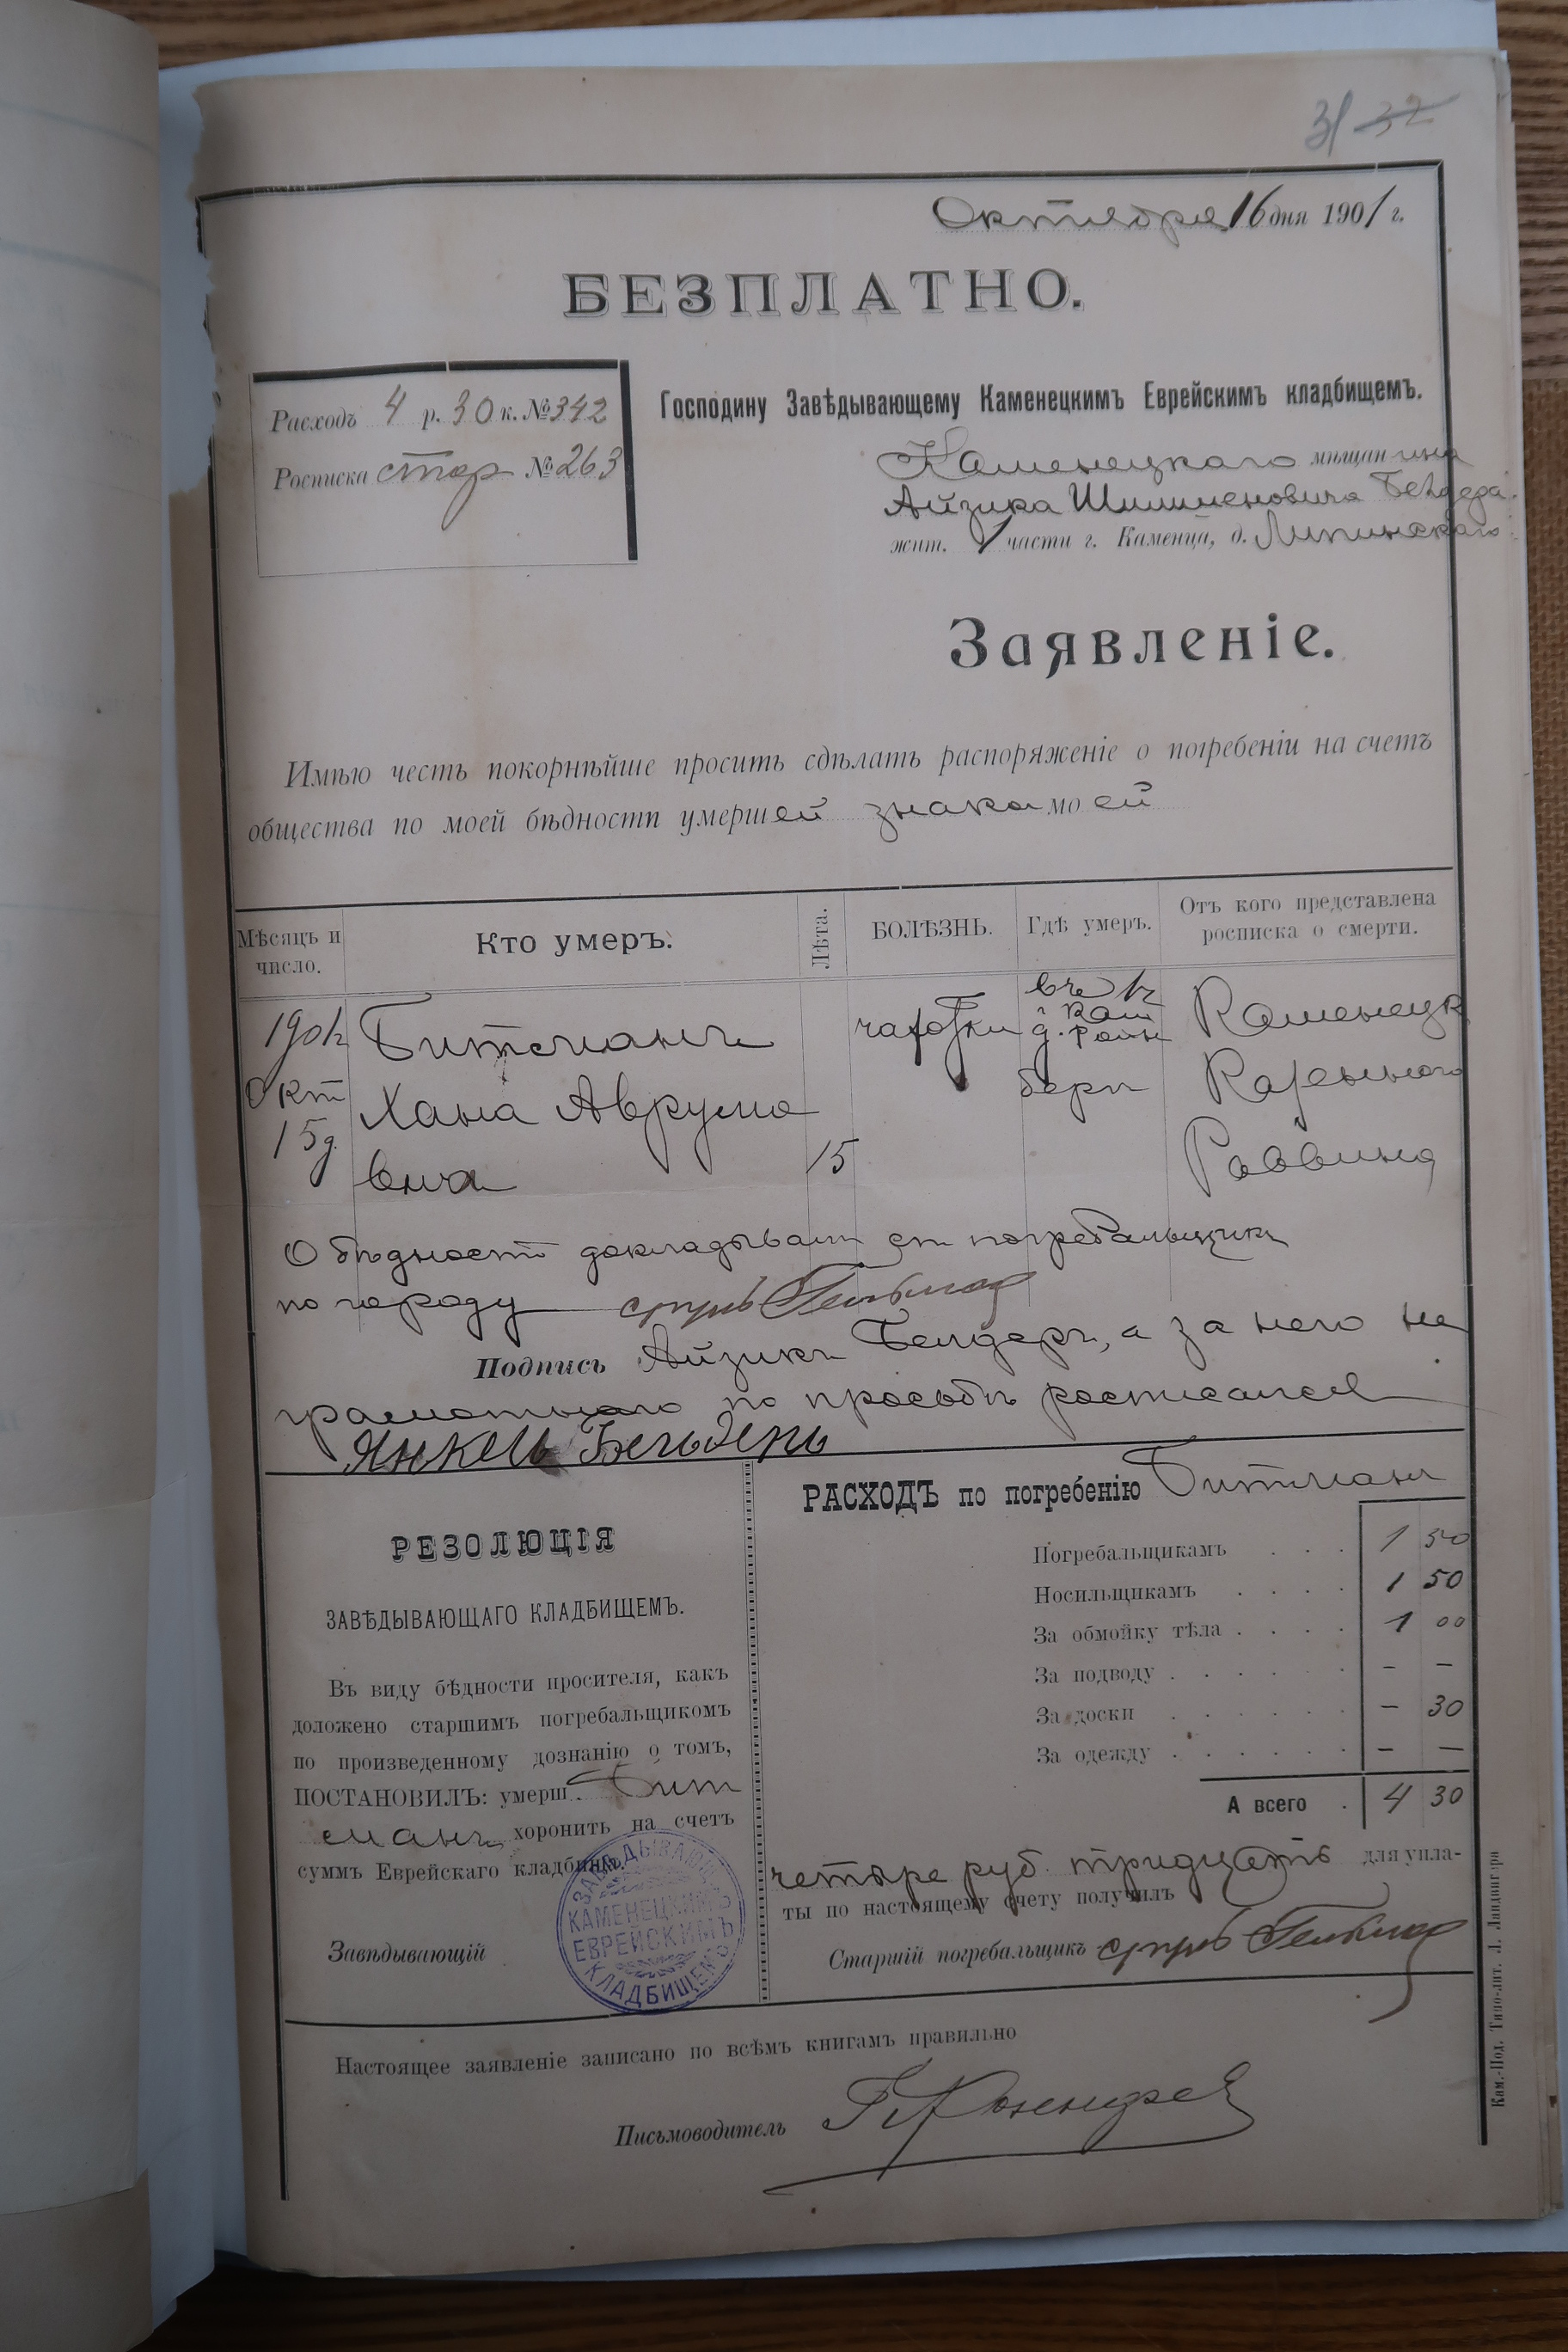 31 32
Октября 16 дня 1901 г.
БЕЗПЛАТНО.
Расходъ 4 р. 30 к. № 342
Росписка стар № 263
Господину Завѣдывающему Каменецкимъ Еврейскимъ кладбищемъ.
Каменецкаго мѣщанина
Айзика Шмименовича Белдера
жит. 1 части г. Каменца, д. Липинскаго
Заявленіе.
Имѣю честь покорнѣйше просить сдѣлать распоряженіе о погребеніи на счетъ
общества по моей бѣдности умершей знакомоей
Мѣсяцъ и число.
Кто умеръ.
Лѣта.
БОЛѢЗНЬ.
Гдѣ умеръ.
Отъ кого представлена росписка о смерти.
1901
Окт
15 д.
Битманъ
Хана Аврумо
вна
15
чахотки
въ
г Кам
д.Ройн
берг
Каменецк
Казеннаго
Раввина
О бѣдности докладывалъ ст. погребальщикъ
по городу
Подпись Айзикъ Белдеръ, а за него не
грамотнаго по просьбѣ росписался
Янкель Бельдеръ
РЕЗОЛЮЦІЯ
ЗАВѢДЫВАЮЩАГО КЛАДБИЩЕМЪ.
Въ виду бѣдности просителя, какъ
доложено старшимъ погребальщикомъ
по произведенному дознанію о томъ,
ПОСТАНОВИЛЪ: умерш. Бит
манъ хоронить на счетъ
суммъ Еврейскаго кладбища.
Завѣдывающій
ЗАВѢДЫВАЮЩ
КАМЕНЕЦКИМЪ
ЕВРЕЙСКИМЪ
КЛАДБИЩЕМЪ
РАСХОДЪ по погребенію Битманъ
Погребальщикамъ . . . 1 50
Носильщикамъ . . . . 1 50
За обмойку тѣла . . . . 1 00
За подводу . . . . . . – –
За доски . . . . . . – 30
За одежду . . . . . . – –
А всего . 4 30
четыре руб. тридцать для упла-
ты по настоящему счету получилъ
Старшій погребальщикъ
Настоящее заявленіе записано по всѣмъ книгамъ правильно
Письмоводитель
Кам.-Под. Типо-лит. Л. Ландвигера